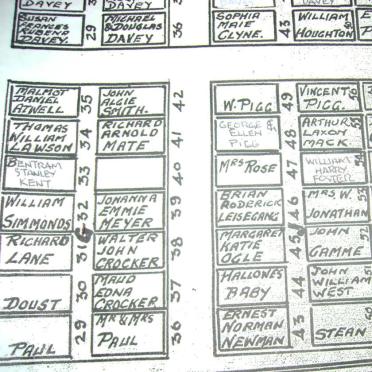 DAVEY
DAVEY
SUSAN
CHARLES
RUBENA
DAVEY.
29
MICHAEL
& DOUGLAS
DAVEY
36
SOPHIA
MAIE
CLYNE.
43
WILLIAM
HOUGHTON
50
MALMOT
DANIEL
ATWELL
35
JOHN
ALGIE
SMITH.
42
W. PIGG
49
VINCENT
PIGG.
THOMAS
WILLIAM
LAWSON
34
RICHARD
ARNOLD
MATE
41
GEORGE &
ELLEN
PIGG
48
ARTHUR
LAXON
MACK
BENTRAM
STANLEY
KENT
33
40
MRS ROSE
47
WILLIAM
HARRY
FOSTER
54
WILLIAM
SIMMONDS
32
JOHANNA
EMMIE
MEYER
39
BRIAN
RODERICK
LEISEGANG
46
MRS W.
JONATHAN
53
RICHARD
LANE
31
WALTER
JOHN
CROCKER
38
MARGARET
KATIE
OGLE
45
JOHN
GAMME
52
DOUST
30
MAUD
EDNA
CROCKER
37
HALLONES
BABY
44
JOHN
WILLIAM
WEST
51
PAUL
29
MR & MRS
PAUL
36
ERNEST
NORMAN
NEWMAN
43
STEAN
50